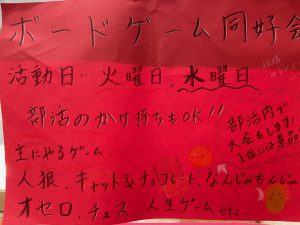 ボードゲーム同好会
活動日…火曜日、水曜日
部活のかけ持ちもOK!!
部活内で
大会もします!
1位には景品
主にやるゲーム
人狼、キャット&チョコレート、なんじゃもんじゃ
オセロ、チェス 人生ゲーム etc